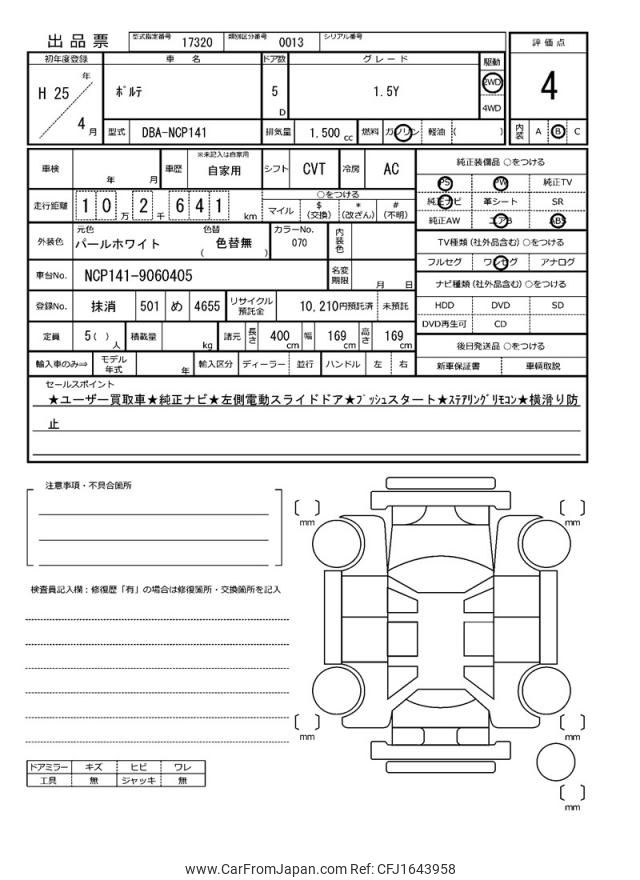 出品票
型式指定番号 17320 類別区分番号 0013 シリアル番号
初年度登録 車名 ドア数 グレード 駆動 評価点
H 25 年 4 月 ﾎﾟﾙﾃ 5 D 1.5Y 2WD 4WD 4
型式 DBA-NCP141 排気量 1.500 cc 燃料 ガソリン 軽油 ( ) 内装 A B C
車検 年 月 車歴 ※未記入は自家用 自家用 シフト CVT 冷房 AC
走行距離 1 0 万 2 千 6 4 1 km ○をつける
マイル $ (交換) * (改ざん) # (不明)
外装色 元色 パールホワイト 色替 ( 色替無 ) カラーNo. 070 内装色
車台No. NCP141-9060405 名変期限 月 日
登録No. 抹消 501 め 4655 リサイクル預託金 10,210円預託済 未預託
定員 5( ) 人 積載量 kg 諸元 長さ 400 cm 幅 169 cm 高さ 169 cm
輸入車のみ⇒ モデル年式 年 輸入区分 ディーラー 並行 ハンドル 左 右
純正装備品 ○をつける
PS PW 純正TV
純正ナビ 革シート SR
純正AW エアB ABS
TV種類 (社外品含む) ○をつける
フルセグ ワンセグ アナログ
ナビ種類 (社外品含む) ○をつける
HDD DVD SD
DVD再生可 CD
後日発送品 ○をつける
新車保証書 車輌取説
セールスポイント
★ユーザー買取車★純正ナビ★左側電動スライドドア★ﾌﾟｯｼｭスタート★ｽﾃｱﾘﾝｸﾞﾘﾓｺﾝ★横滑り防
止
注意事項・不具合箇所
検査員記入欄：修復歴「有」の場合は修復箇所・交換箇所を記入
ドアミラー キズ ヒビ ワレ
工具 無 ジャッキ 無
[ ] mm [ ] mm
[ ] mm [ ] mm
[ ] mm
www.CarFromJapan.com Ref: CFJ1643958